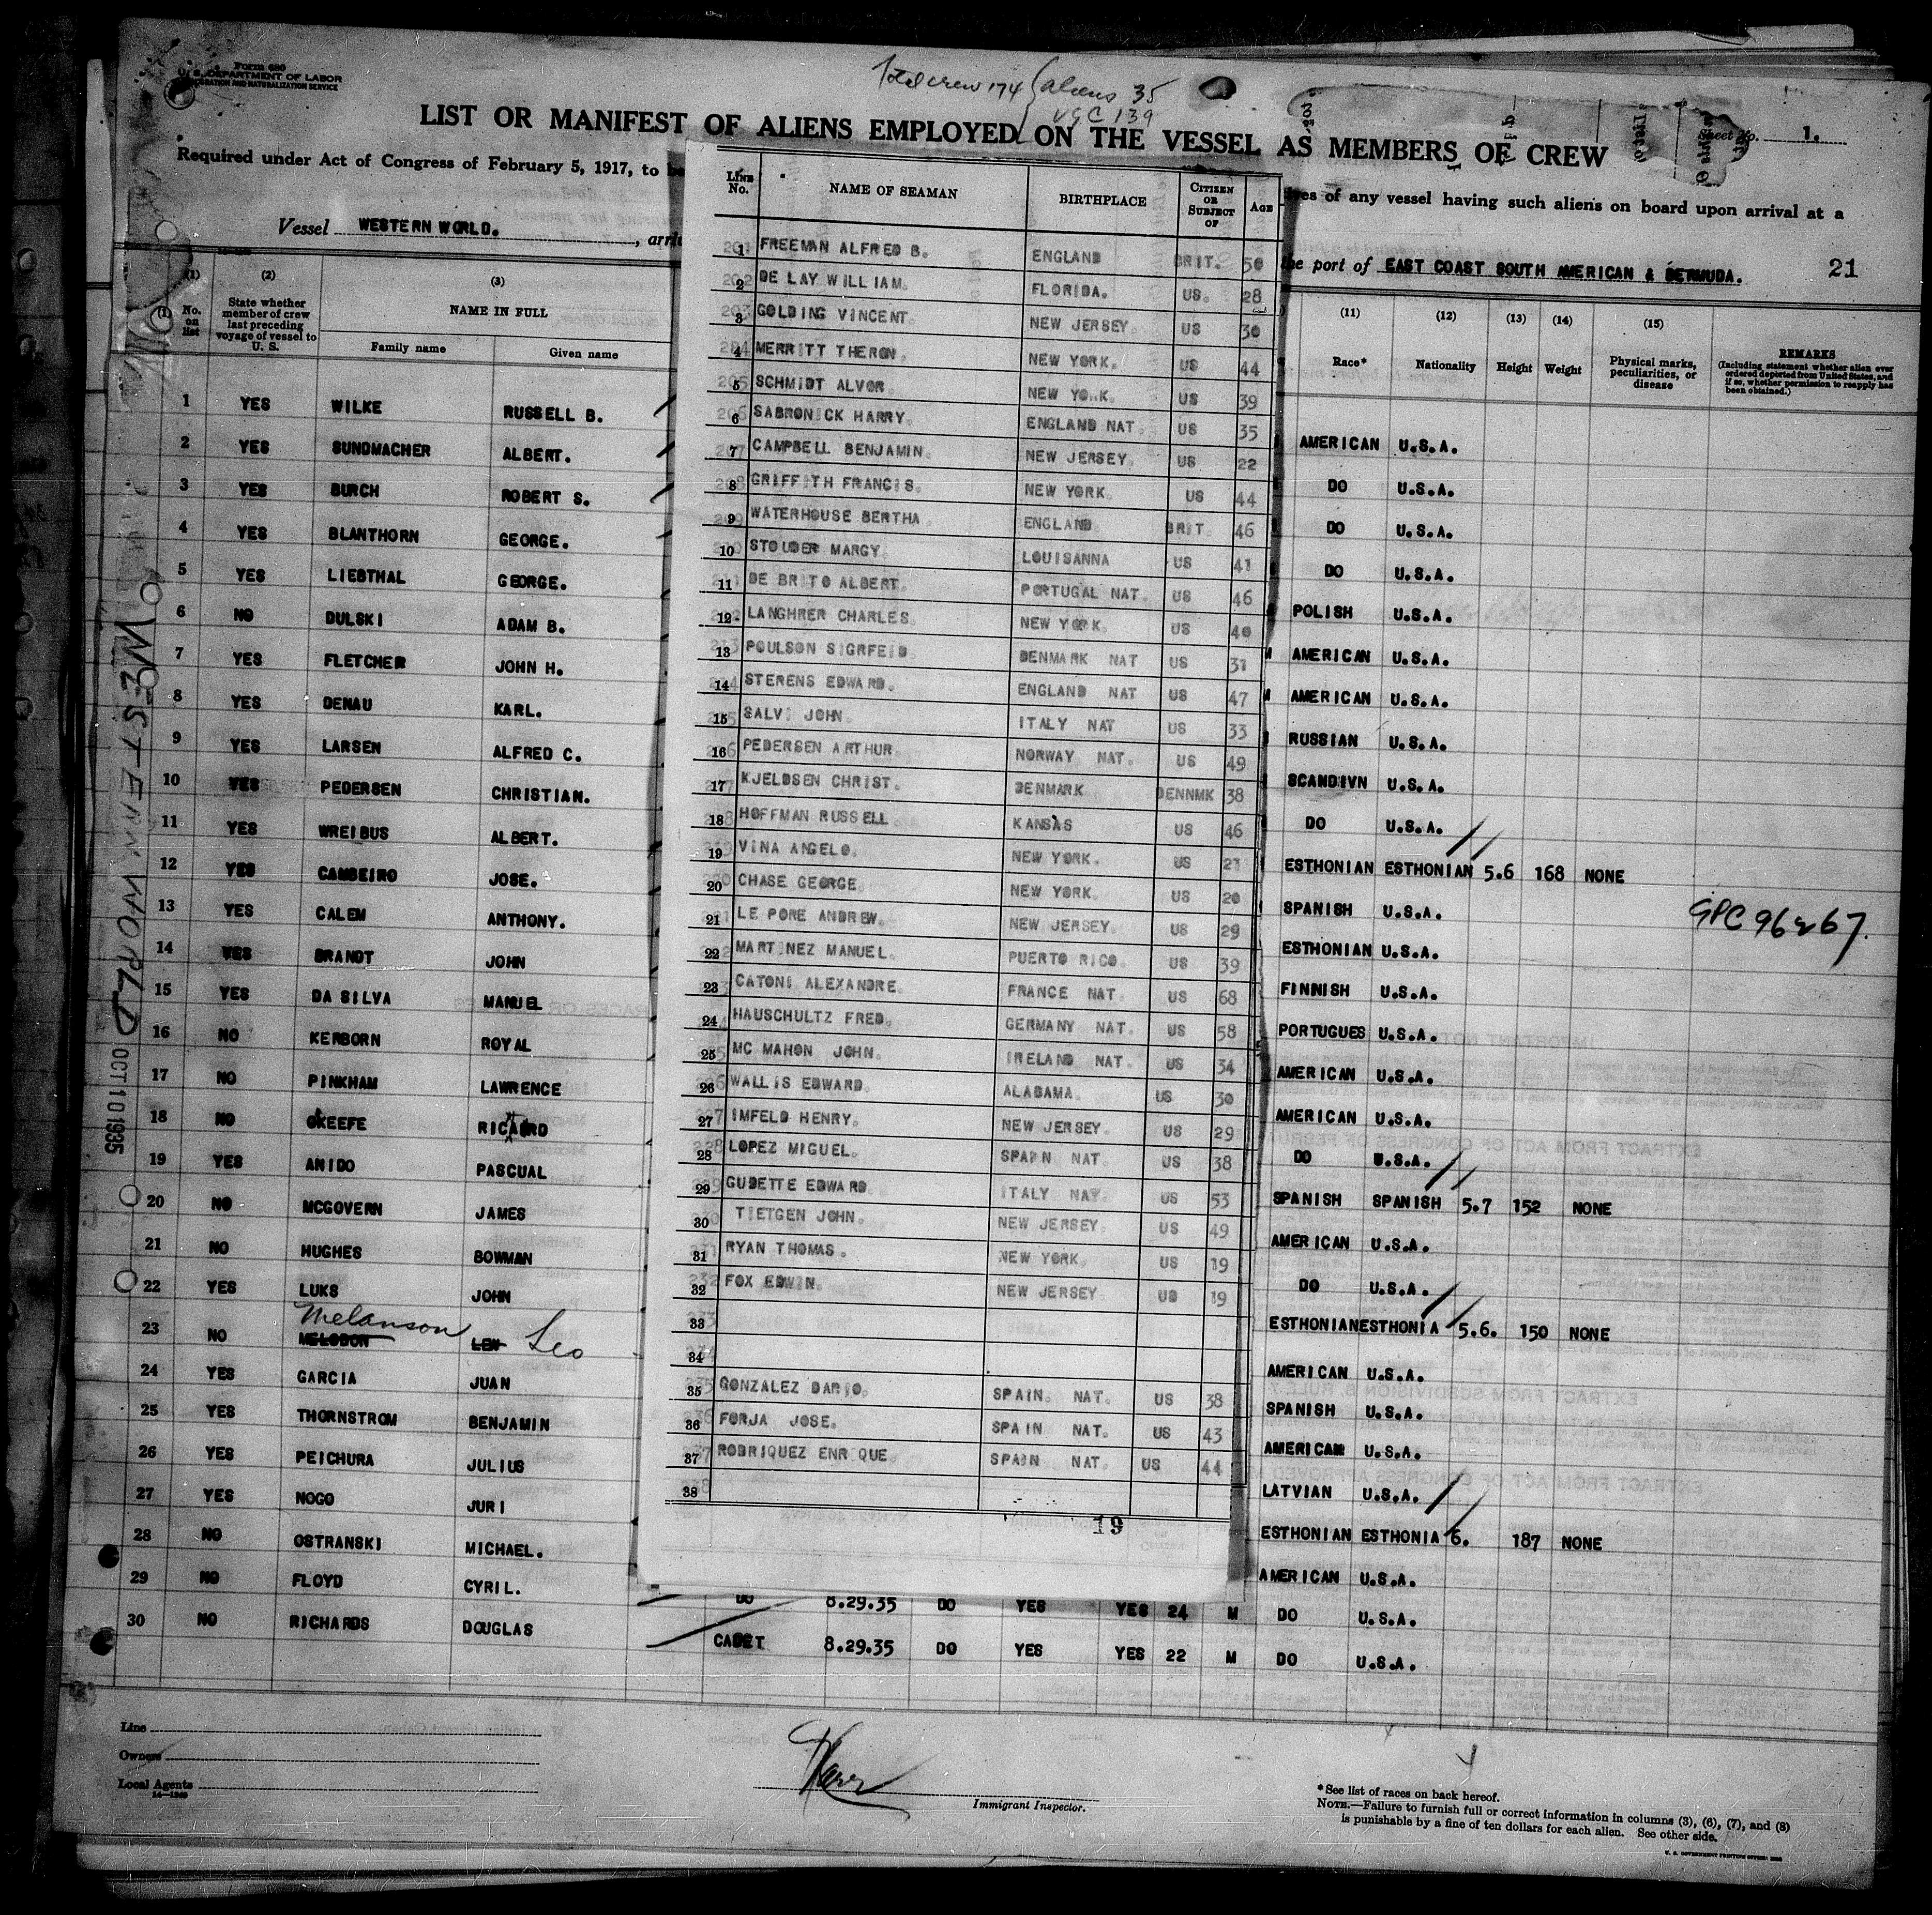 Form 680
U. S. DEPARTMENT OF LABOR
IMMIGRATION AND NATURALIZATION SERVICE
Total crew 174 aliens 35
USC 139
LIST OR MANIFEST OF ALIENS EMPLOYED ON THE VESSEL AS MEMBERS OF CREW
Sheet No. 1.
Required under Act of Congress of February 5, 1917, to be
of any vessel having such aliens on board upon arrival at a
Vessel WESTERN WORLD.
the port of EAST COAST SOUTH AMERICAN & BERMUDA. 21
(1) No. on list
(2) State whether member of crew last preceding voyage of vessel to U. S.
(3) NAME IN FULL
Family name Given name
(11) Race*
(12) Nationality
(13) Height
(14) Weight
(15) Physical marks, peculiarities, or disease
REMARKS
(Including statement whether alien ever ordered deported from United States, and if so, whether permission to reapply has been obtained.)
1 YES WILKE RUSSELL B.
2 YES SUNDMACHER ALBERT.
3 YES BURCH ROBERT S.
4 YES BLANTHORN GEORGE.
5 YES LIEBTHAL GEORGE.
6 NO DULSKI ADAM B.
7 YES FLETCHER JOHN H.
8 YES DENAU KARL.
9 YES LARSEN ALFRED C.
10 YES PEDERSEN CHRISTIAN.
11 YES WREIBUS ALBERT.
12 YES CAMBEIRO JOSE.
13 YES CALEM ANTHONY.
14 YES BRANDT JOHN
15 YES DA SILVA MANUEL
16 NO KERBORN ROYAL
17 NO PINKHAM LAWRENCE
18 NO OKEEFE RICAIRD
19 YES ANIDO PASCUAL
20 NO MCGOVERN JAMES
21 NO HUGHES BOWMAN
22 YES LUKS JOHN
Melanson
23 NO MELODON LEN Leo
24 YES GARCIA JUAN
25 YES THORNSTROM BENJAMIN
26 YES PEICHURA JULIUS
27 YES NOGO JURI
28 NO OSTRANSKI MICHAEL.
29 NO FLOYD CYRIL.
30 NO RICHARDS DOUGLAS
LINE No. NAME OF SEAMAN BIRTHPLACE CITIZEN OR SUBJECT OF AGE
1 FREEMAN ALFRED B. ENGLAND BRIT. 50
2 DE LAY WILLIAM. FLORIDA. US. 28
3 GOLDING VINCENT. NEW JERSEY. US 30
4 MERRITT THERON. NEW YORK. US 44
5 SCHMIDT ALVOR. NEW YORK. US 39
6 SABRONICK HARRY. ENGLAND NAT. US 35
7 CAMPBELL BENJAMIN. NEW JERSEY. US 22
8 GRIFFITH FRANCIS. NEW YORK. US 44
9 WATERHOUSE BERTHA ENGLAND. BRIT. 46
10 STOUDER MARGY. LOUISANNA US 41
11 DE BRITO ALBERT. PORTUGAL NAT. US 46
12 LANGHRER CHARLES. NEW YORK. US 40
13 POULSON SIGRFEID DENMARK NAT US 31
14 STERENS EDWARD. ENGLAND NAT US 47
15 SALVI JOHN ITALY NAT US 33
16 PEDERSEN ARTHUR. NORWAY NAT. US 49
17 KJELDSEN CHRIST. DENMARK DENNMK 38
18 HOFFMAN RUSSELL KANSAS US 46
19 VINA ANGELO. NEW YORK. US 21
20 CHASE GEORGE NEW YORK. US 20
21 LE PORE ANDREW. NEW JERSEY. US 29
22 MARTINEZ MANUEL. PUERTO RICO. US 39
23 CATONI ALEXANDRE. FRANCE NAT. US 68
24 HAUSCHULTZ FRED. GERMANY NAT. US 58
25 MC MAHON JOHN. IRELAND NAT. US 34
26 WALLIS EDWARD. ALABAMA. US 30
27 IMFELD HENRY. NEW JERSEY. US 29
28 LOPEZ MIGUEL. SPAIN NAT. US 38
29 GUDETTE EDWARD ITALY NAT. US 53
30 TIETGEN JOHN. NEW JERSEY. US 49
31 RYAN THOMAS. NEW YORK. US 19
32 FOX EDWIN. NEW JERSEY. US 19
33
34
35 GONZALEZ DARIO. SPAIN. NAT. US 38
36 FORJA JOSE. SPAIN NAT. US 43
37 RODRIQUEZ ENRIQUE. SPAIN NAT. US 44
38
19
AMERICAN U.S.A.
DO U.S.A.
DO U.S.A.
DO U.S.A.
POLISH U.S.A.
AMERICAN U.S.A.
AMERICAN U.S.A.
RUSSIAN U.S.A.
SCANDIVN U.S.A.
DO U.S.A.
ESTHONIAN ESTHONIAN 5.6 168 NONE
SPANISH U.S.A.
ESTHONIAN U.S.A.
FINNISH U.S.A.
PORTUGUES U.S.A.
AMERICAN U.S.A.
AMERICAN U.S.A.
DO U.S.A.
SPANISH SPANISH 5.7 152 NONE
AMERICAN U.S.A.
DO U.S.A.
ESTHONIAN ESTHONIA 5.6. 150 NONE
AMERICAN U.S.A.
SPANISH U.S.A.
AMERICAN U.S.A.
LATVIAN U.S.A.
ESTHONIAN ESTHONIA 6. 187 NONE
AMERICAN U.S.A.
DO 8.29.35 DO YES YES 24 M DO U.S.A.
CADET 8.29.35 DO YES YES 22 M DO U.S.A.
WESTERN WORLD
OCT 10 1935
Line
Owners
Local Agents
14—1240
Immigrant Inspector.
*See list of races on back hereof.
NOTE.—Failure to furnish full or correct information in columns (3), (6), (7), and (8)
is punishable by a fine of ten dollars for each alien. See other side.
U. S. GOVERNMENT PRINTING OFFICE